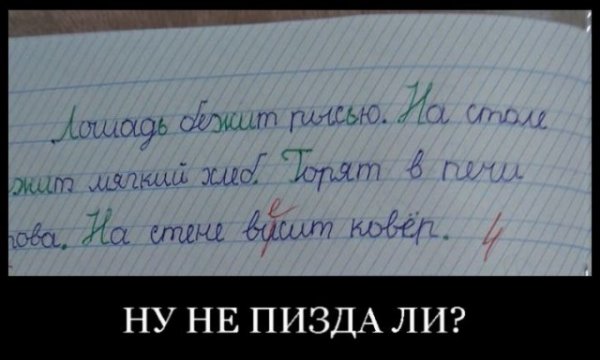 Лошадь бежит рысью. На столе
жит мягкий хлеб. Горят в печи
е
ова. На стене висит ковёр. 4
НУ НЕ ПИЗДА ЛИ?